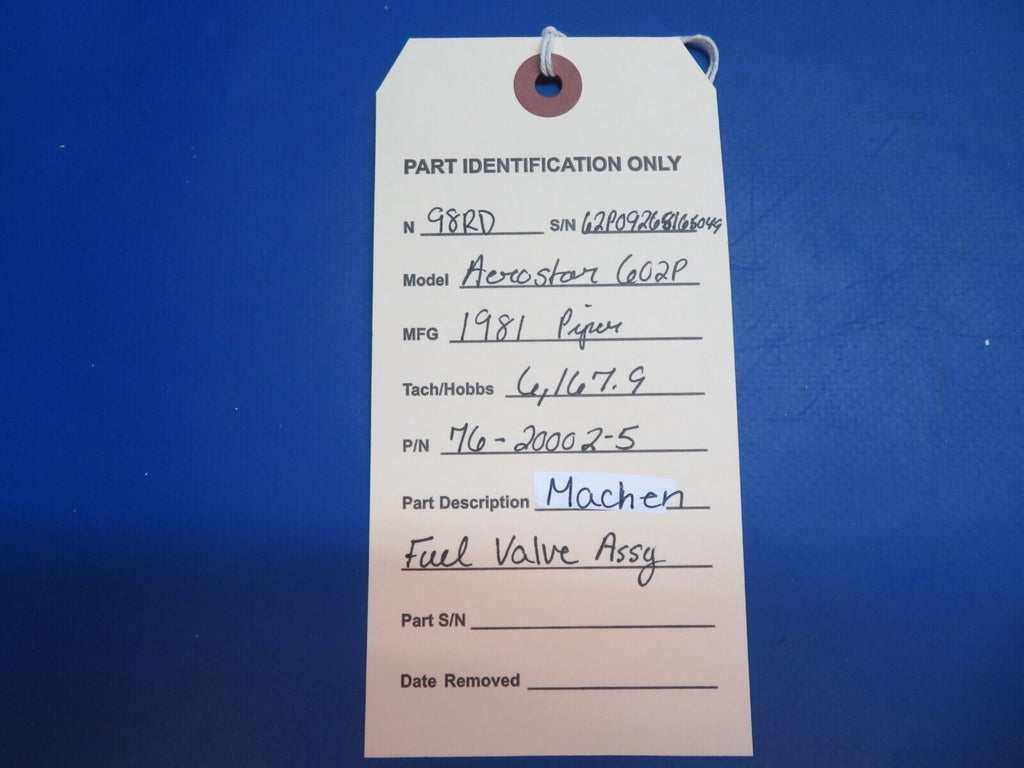 PART IDENTIFICATION ONLY
N 98RD S/N 62P09268165049
Model Aerostar 602P
MFG 1981 Piper
Tach/Hobbs 6,167.9
P/N 76-20002-5
Part Description Machen
Fuel Valve Assy
Part S/N
Date Removed